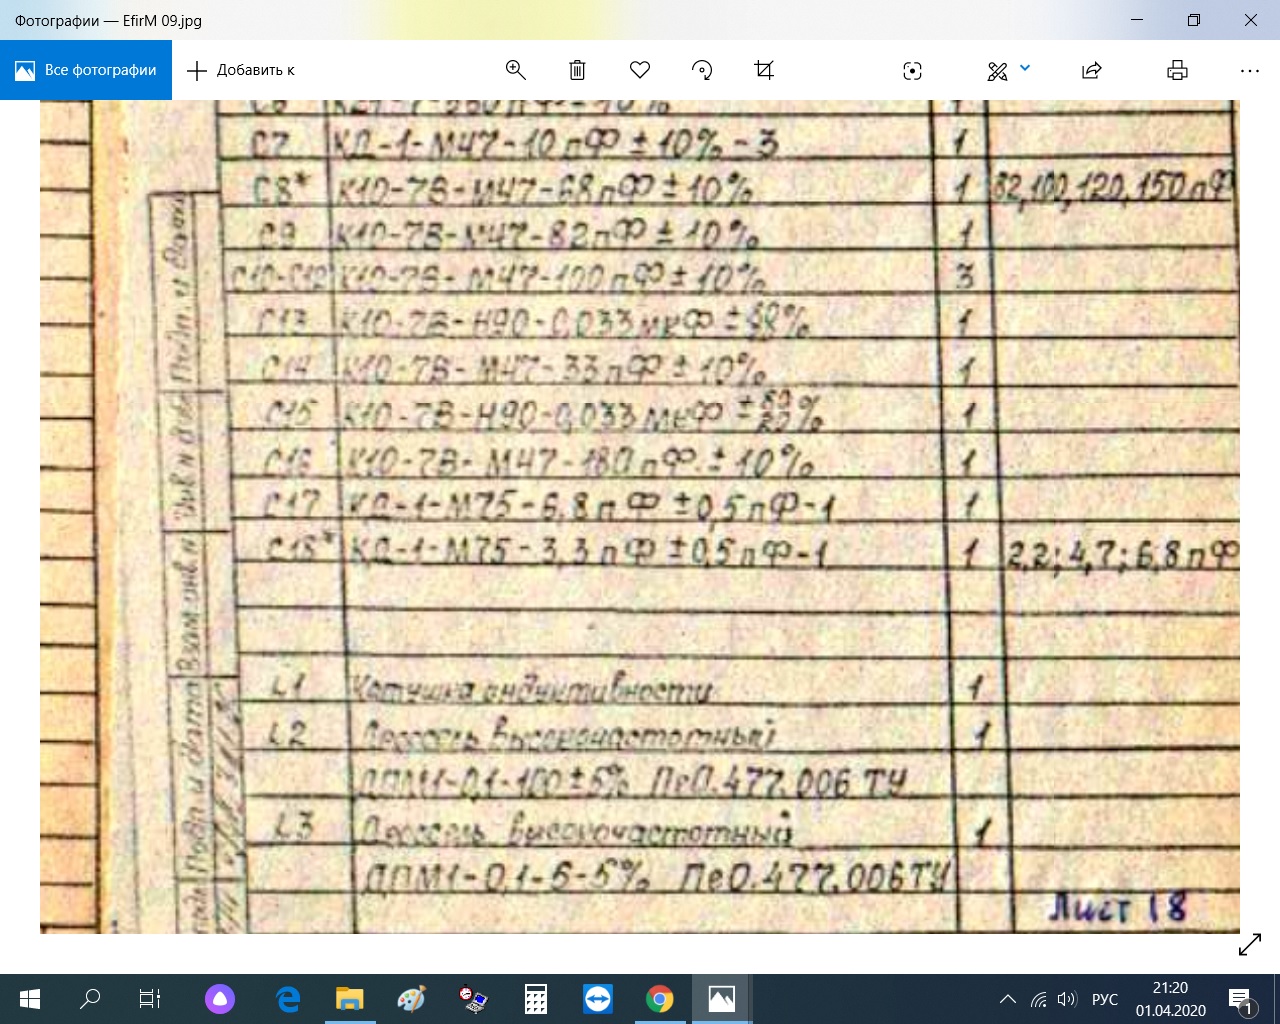 Фотографии — EfirM 09.jpg
Все фотографии
Добавить к
С7 КД-1-М47-10 пФ ± 10% - 3 1
С8* К10-7В-М47-68 пФ ± 10% 1 82,100,120,150 пФ
С9 К10-7В-М47-82 пФ ± 10% 1
С10-С12 К10-7В-М47-100 пФ ± 10% 3
С13 К10-7В-Н90-0,033 мкФ ± % 1
С14 К10-7В-М47-33 пФ ± 10% 1
С15 К10-7В-Н90-0,033 мкФ ± 80 20 % 1
С16 К10-7В-М47-180 пФ ± 10% 1
С17 КД-1-М75-6,8 пФ ± 0,5 пФ-1 1
С18* КД-1-М75-3,3 пФ ± 0,5 пФ-1 1 2,2; 4,7; 6,8 пФ
L1 Катушка индуктивности 1
L2 Дроссель высокочастотный 1
ДПМ1-0,1-100 ± 5% ПеО.477.006 ТУ
L3 Дроссель высокочастотный 1
ДПМ1-0,1-6-5% ПеО.477.006 ТУ
Лист 18
Подп. и
Взам. инв. N
Подп и дата
РУС
21:20
01.04.2020
1